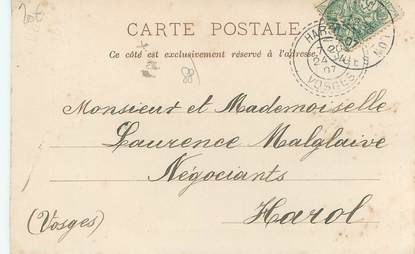 20€
CARTE POSTALE
Ce côté est exclusivement réservé à l'adresse
HAROL
07
VOSGES
Monsieur et Mademoiselle
Laurence Malglaive
Négociants
Harol
(Vosges)